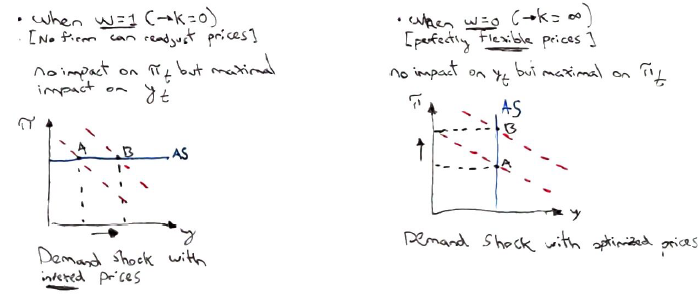 • when w=1 (→k=0)
[No firm can readjust prices]
no impact on πt but maximal
impact on yt
π
A
B
AS
y
Demand shock with
inexed prices
• when w=0 (→k=∞)
[perfectly flexible prices]
no impact on yt but maximal on πt
π
AS
B
A
y
Demand shock with optimized prices